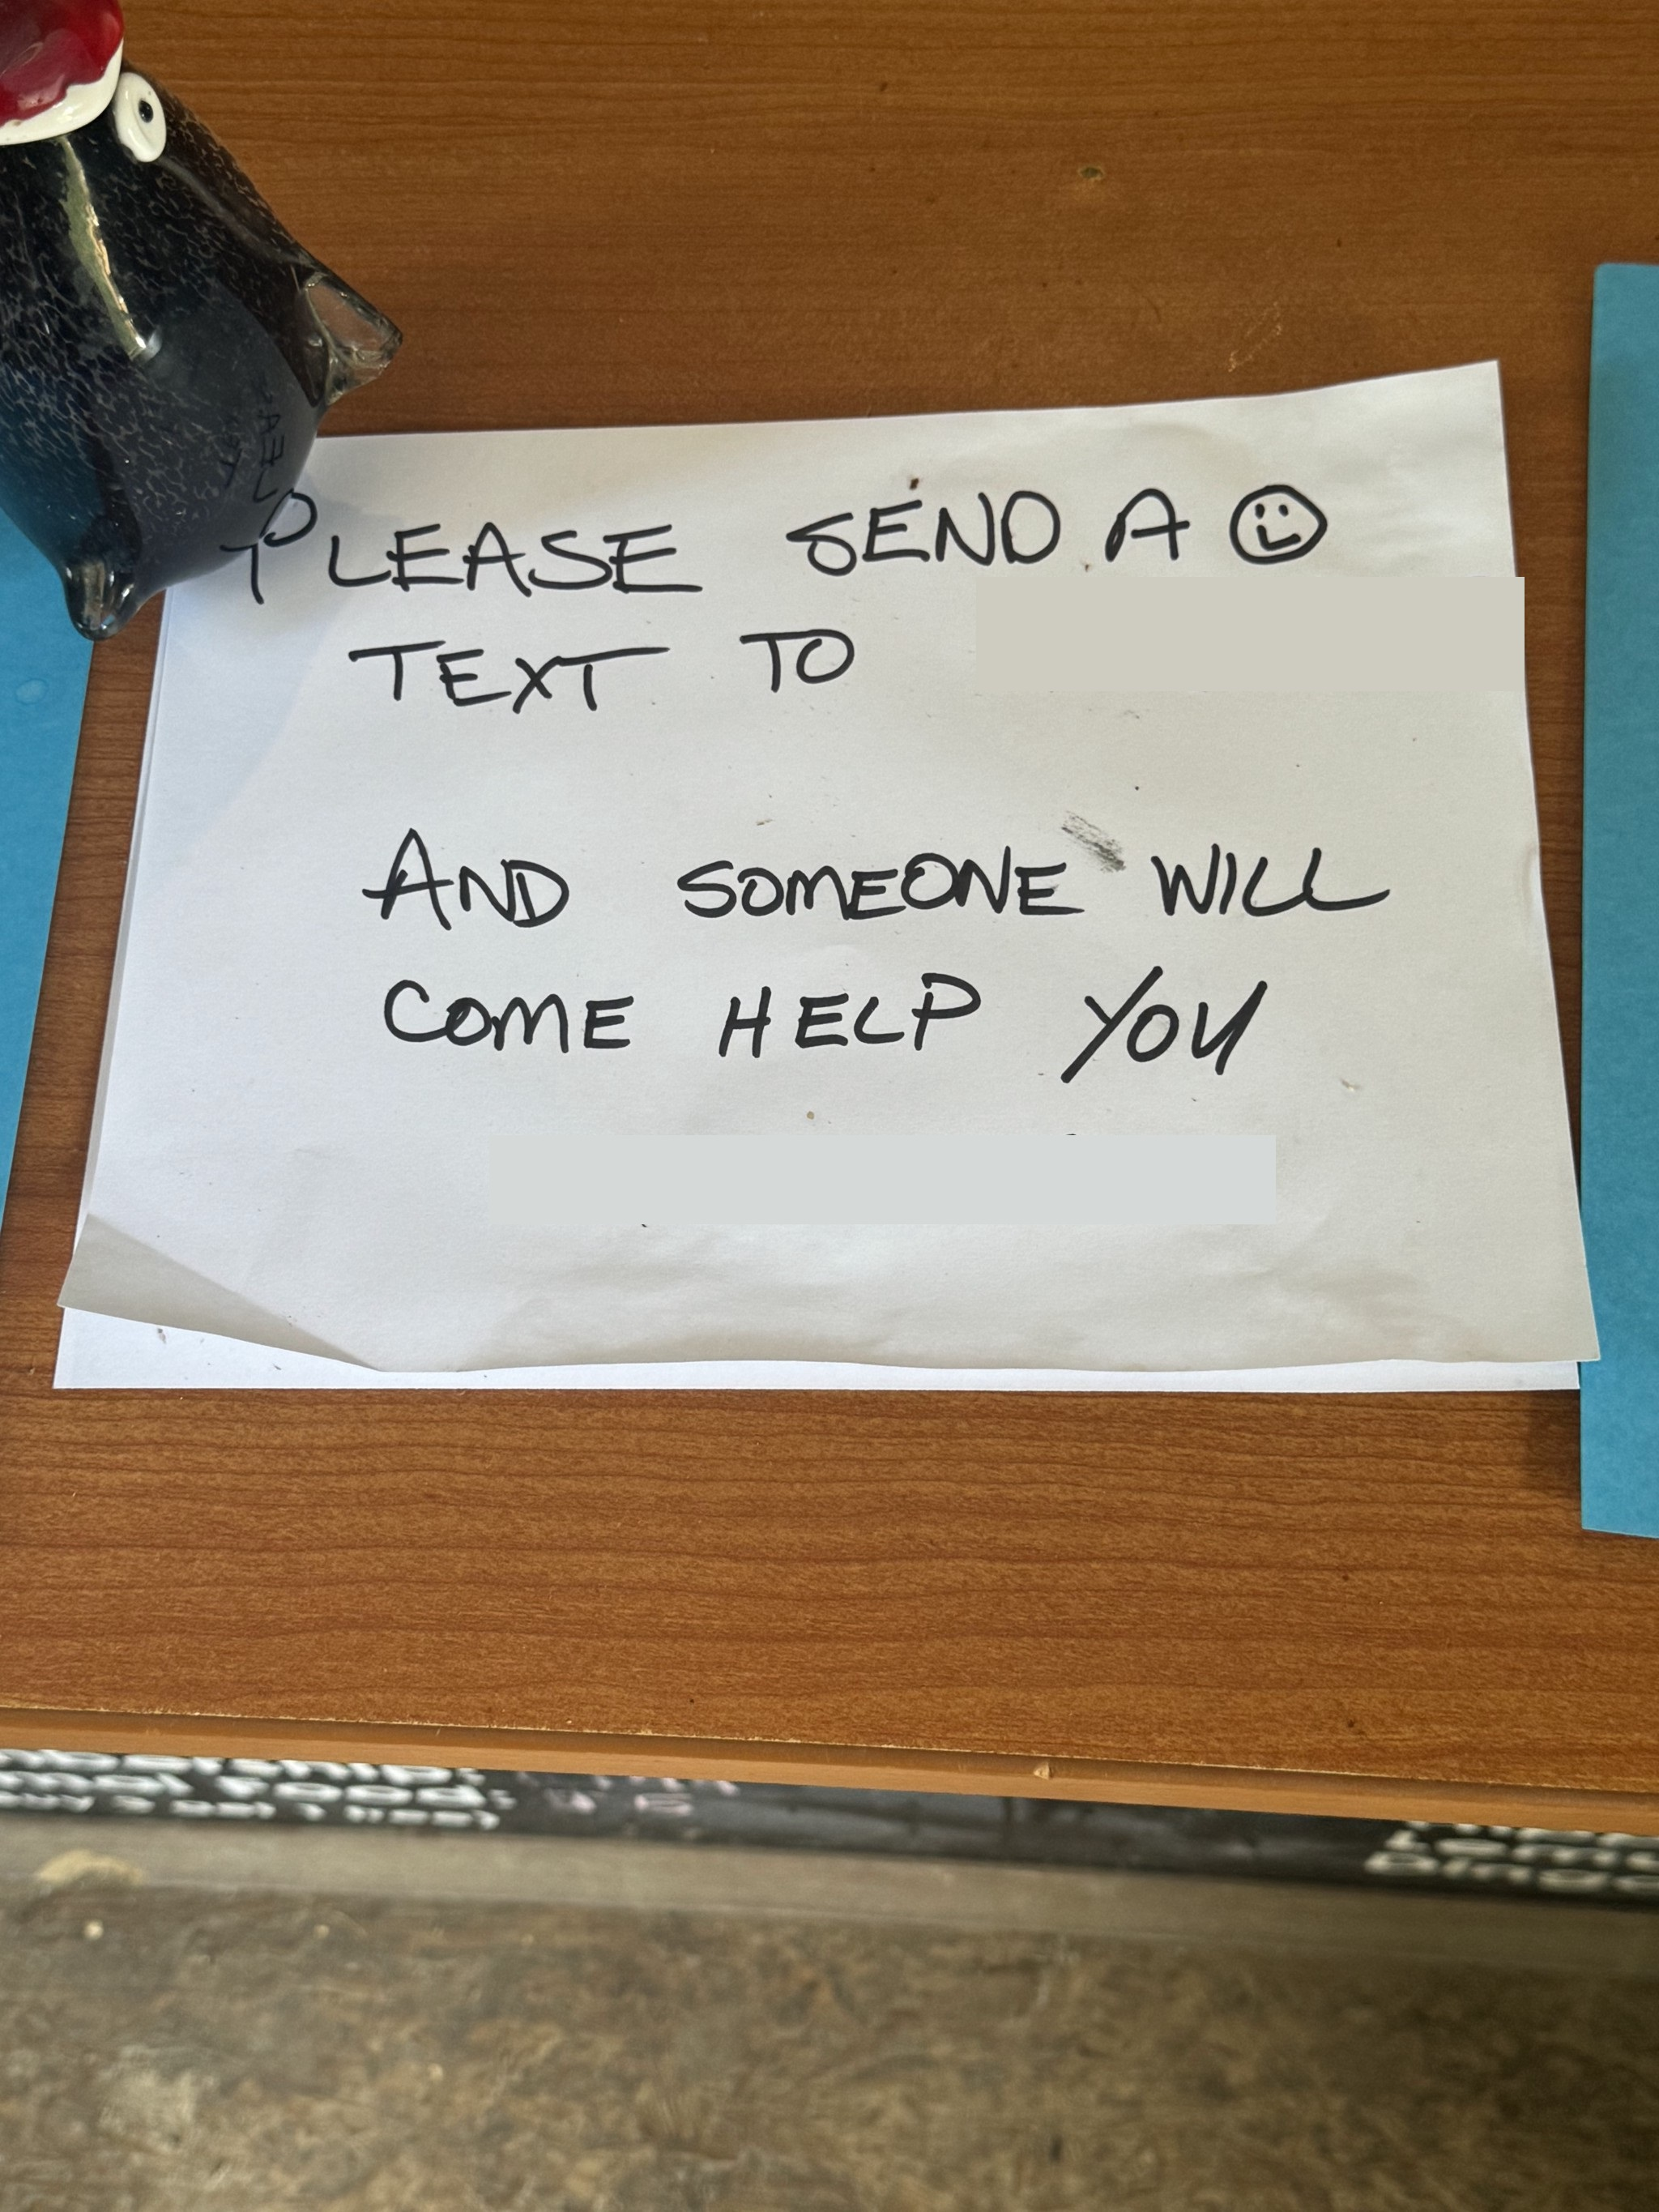 PLEASE SEND A ☺
TEXT TO
AND SOMEONE WILL
COME HELP YOU